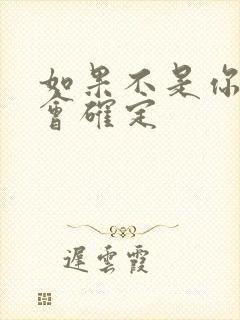 如果不是你
會確定
遲雲霞